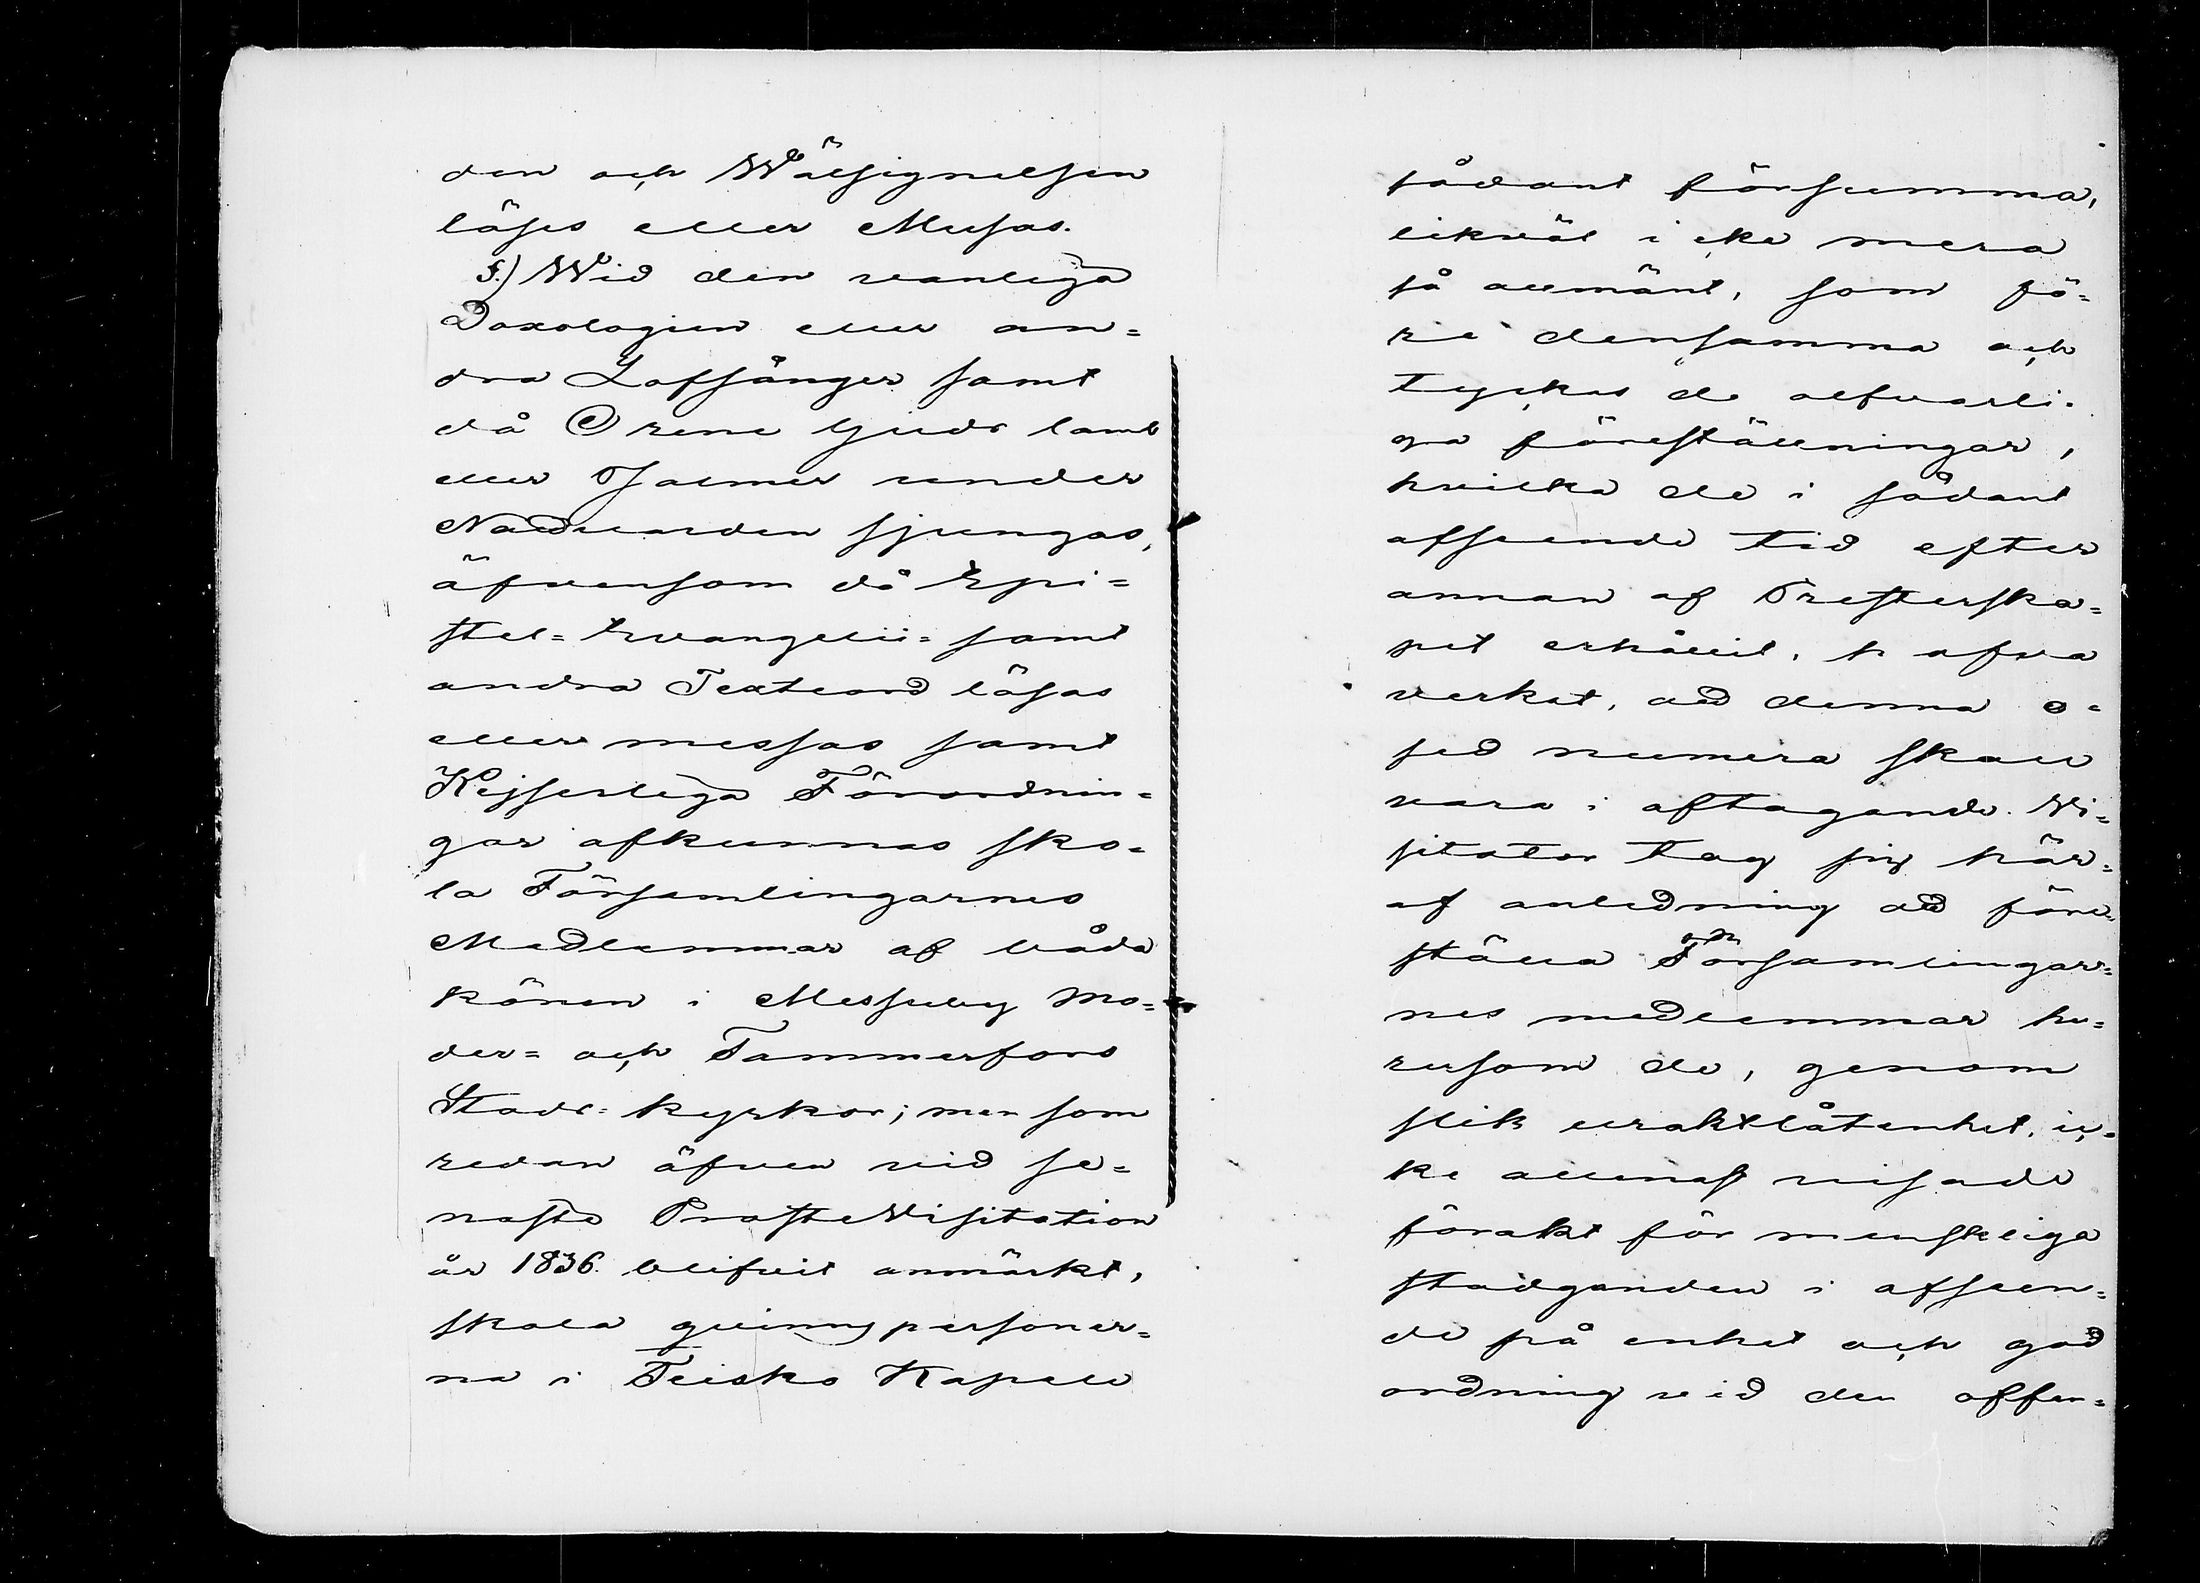 den och Wälsignelsen
läses eller Messas.
5.) Wid den vanliga
Doxologien eller an=
dra Lofsånger samt
då O rene Guds lamb
eller Psalmer under
Nattvarden sjungas,
äfvensom då Epi=
stel= Evangelii= samt
andra Texteord läsas
eller messas samt
Kejserliga Förordnin=
gar afkunnas sko=
la Församlingarnes
Medlemmar af båda
könen i Messuby Mo=
der= och Tammerfors
Stads= kyrkor; men som
redan äfven vid se=
naste ProsteVisitation
år 1836 blifvit anmärkt,
skola qvinnspersoner=
na i Teisko Kapell
sådant försumma,
likväl icke mera
så allmänt, som fö=
re densamma och
tyckas de alfvarli=
ga föreställningar,
hvilka de i sådant
afseende tid efter
annan af Presterska=
pet erhållit, hafva
verkat, att denna o=
sed numera skall
vara i aftagande. Vi=
sitator tog sig här=
af anledning att före=
ställa Församlingar=
nes medlemmar hu=
rusom de, genom
slik uraktlåtenhet, ic=
ke allenast visade
förakt för menskliga
stadganden i afseen=
de på enhet och god
ordning vid den offen=